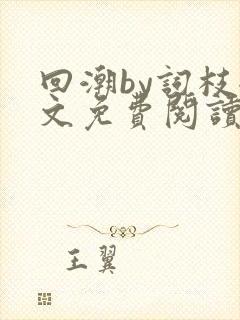 回潮by詞枝
文免費閱讀
王翼